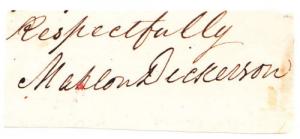 Respectfully
Mahlon Dickerson